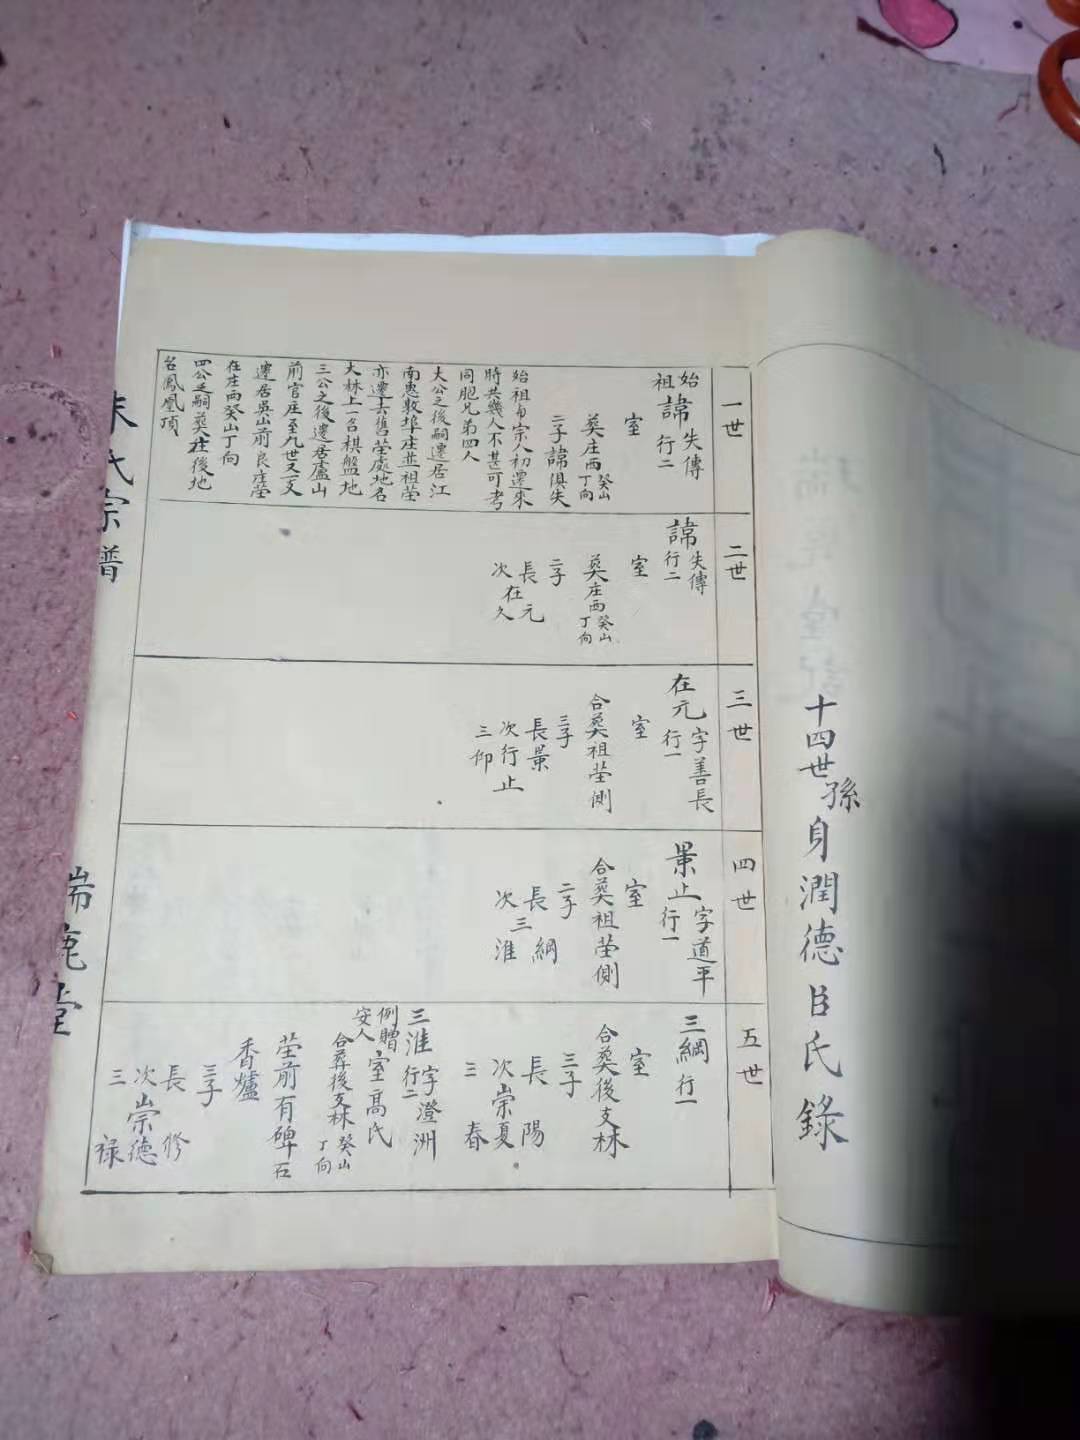 十四世孫身潤德臣氏錄
一世
始祖諱失傳行二
室
葬庄西癸山丁向
二子諱俱失
始祖自宗人初遷來
時共幾人不甚可考
同胞兄弟四人
大公之後嗣遷居江
南惠敦埠庄並祖茔
亦遷去舊茔處地名
大林上一名棋盤地
三公之後遷居廬山
前官庄至九世又一支
遷居吳山前良庄茔
在庄西癸山丁向
四公之嗣葬庄後地
名鳳凰頂
二世
諱失傳行二
室
葬庄西癸山丁向
二子
長在元
次在久
三世
在元字善長行一
室
合葬祖茔側
三子
長景止
次行止
三仰止
四世
景止字道平行一
室
合葬祖茔側
二子
長三綱
次三淮
五世
三綱行一
室
合葬後支林
三子
長崇陽
次崇夏
三崇春
三淮字澄洲行二
例贈安人室高氏
合葬後支林癸山丁向
茔前有碑石
香爐
三子
長崇修
次崇德
三崇禄
氏宗譜
瑞鹿堂